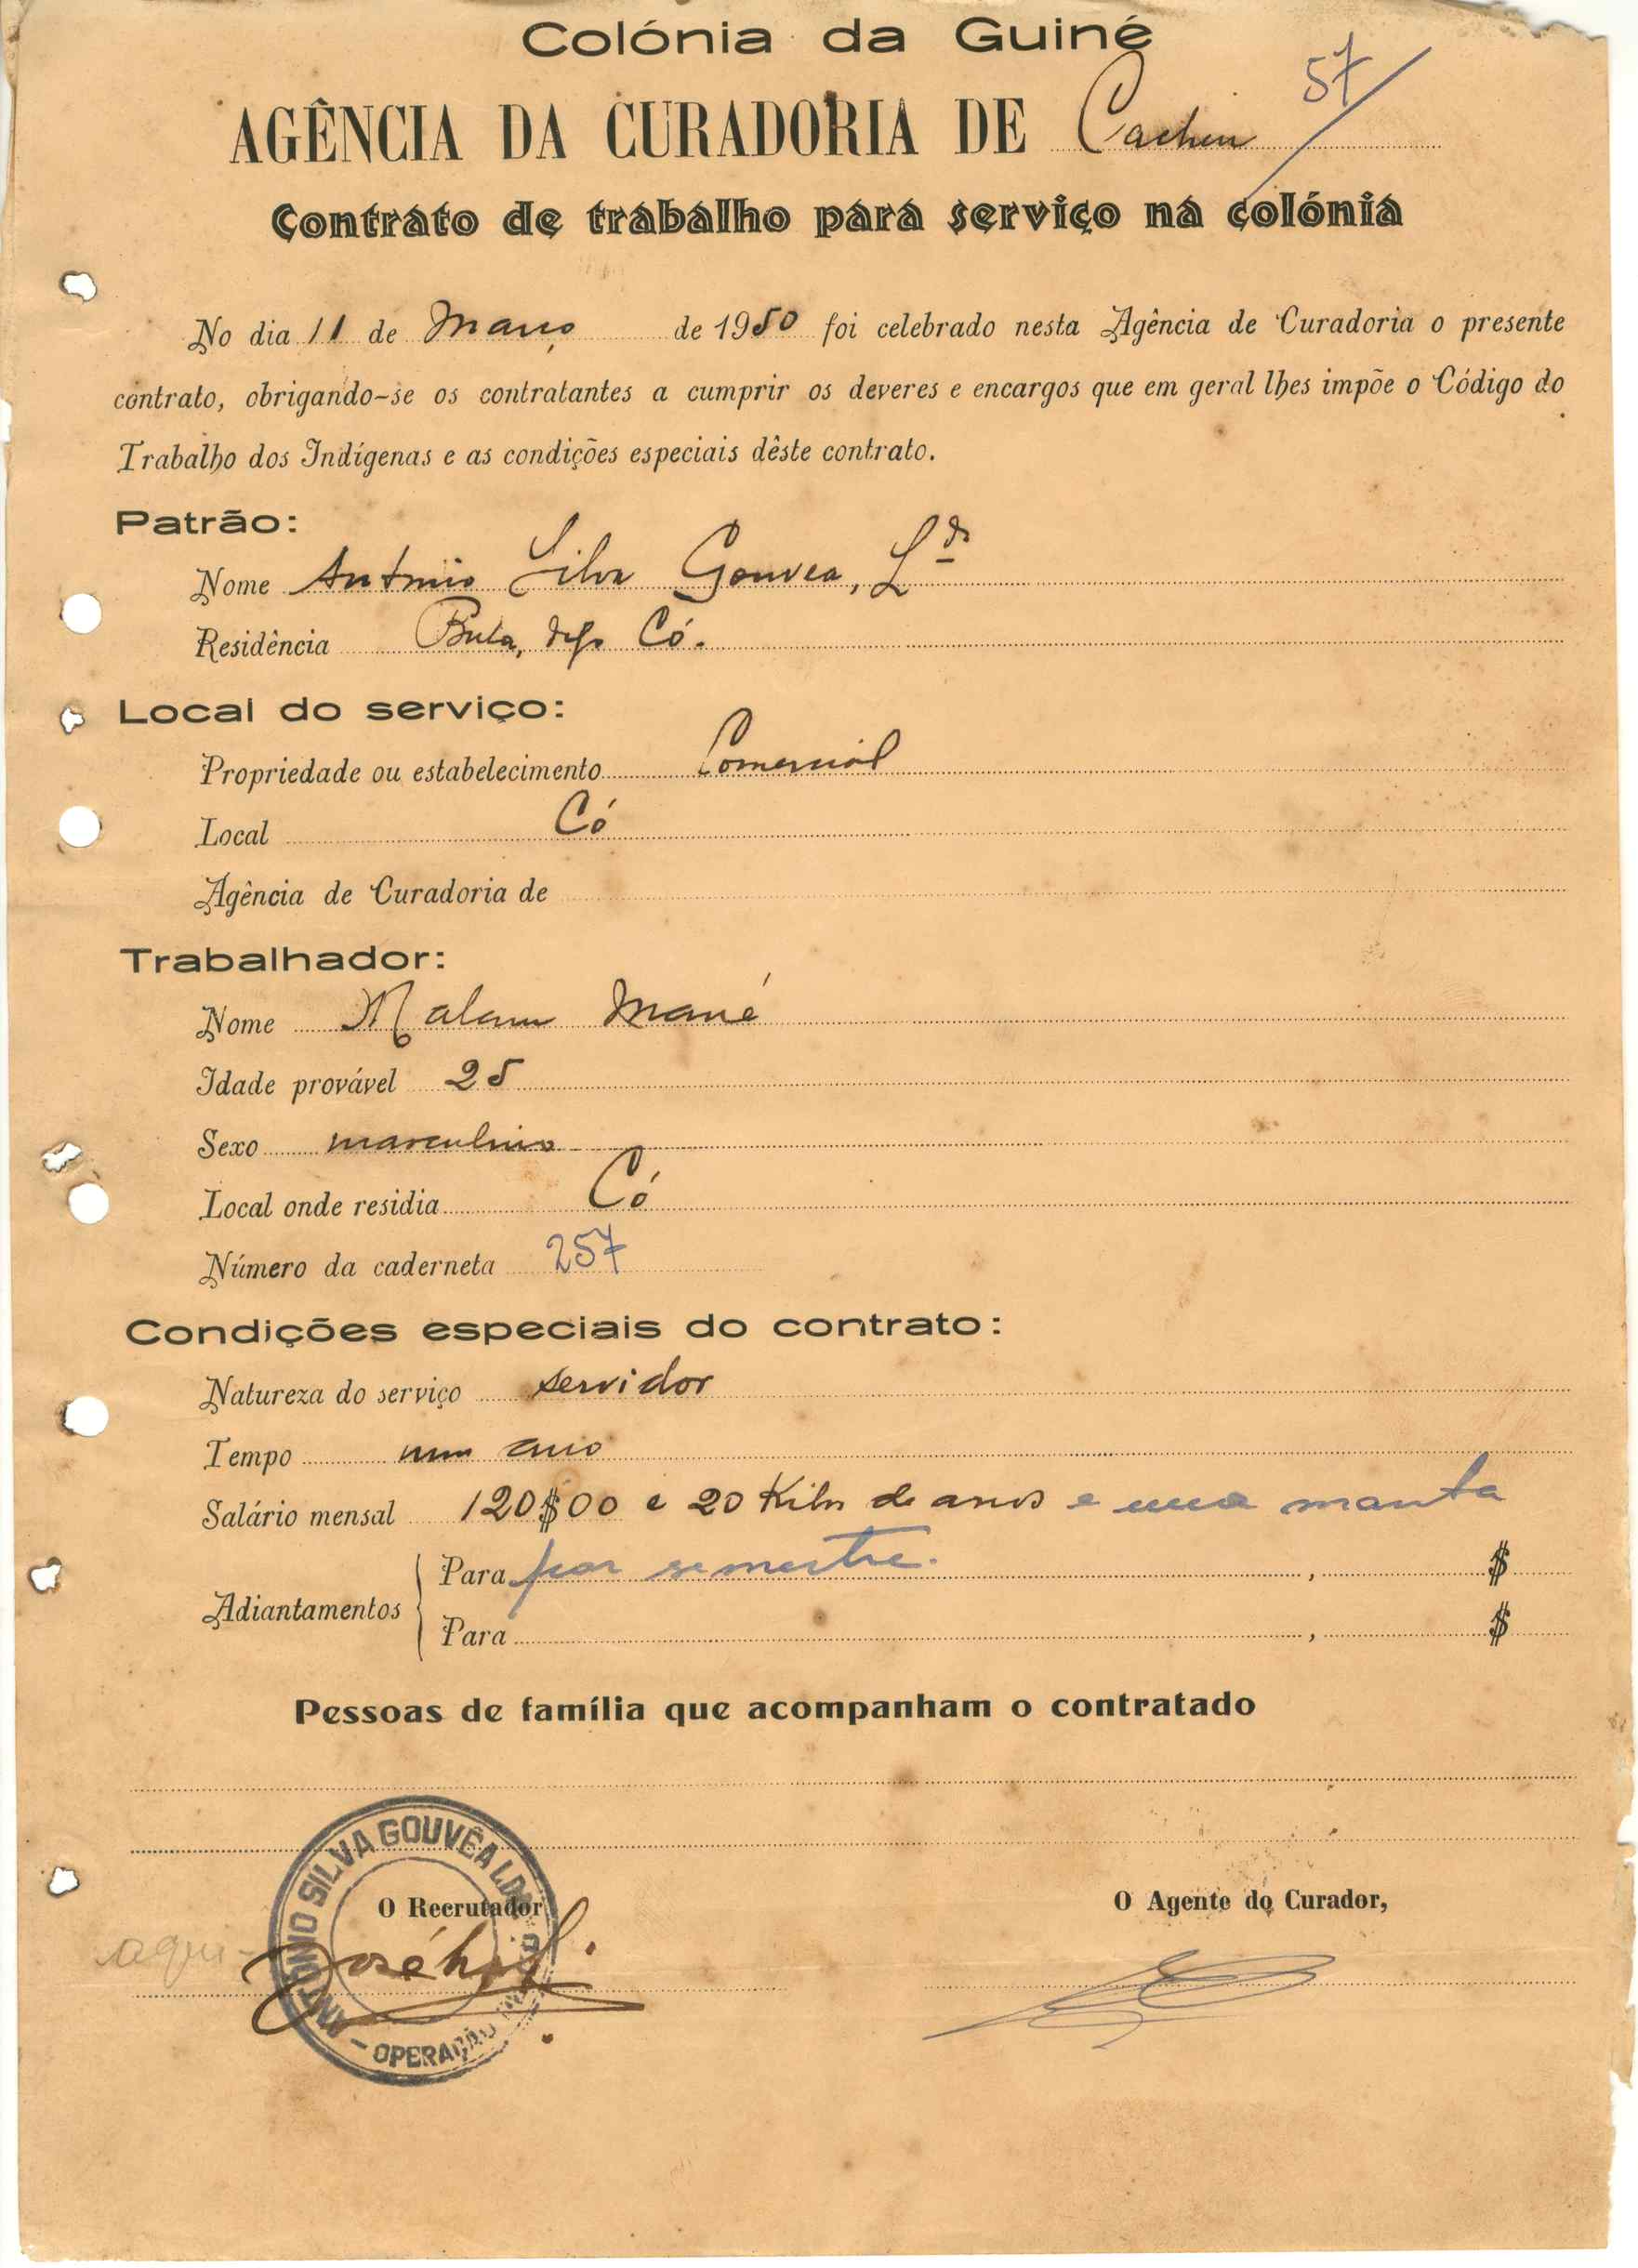 Colónia da Guiné
57
AGÊNCIA DA CURADORIA DE Cacheu
Contrato de trabalho para serviço na colónia
No dia 11 de Março de 1950 foi celebrado nesta Agência de Curadoria o presente
contrato, obrigando-se os contratantes a cumprir os deveres e encargos que em geral lhes impõe o Código do
Trabalho dos Indígenas e as condições especiais dêste contrato.
Patrão:
Nome António Silva Gouvea, Lda
Residência Bula, Có.
Local do serviço:
Propriedade ou estabelecimento Comercial
Local Có
Agência de Curadoria de
Trabalhador:
Nome Malam Mané
Idade provável 25
Sexo masculino
Local onde residia Có
Número da caderneta 257
Condições especiais do contrato:
Natureza do serviço servidor
Tempo um ano
Salário mensal 120$00 e 20 Kilos de arros e uma manta
Adiantamentos
Para por semestre. , $
Para , $
Pessoas de família que acompanham o contratado
ANTÓNIO SILVA GOUVÊA LDA
O Recrutador
O Agente do Curador,
aqui-